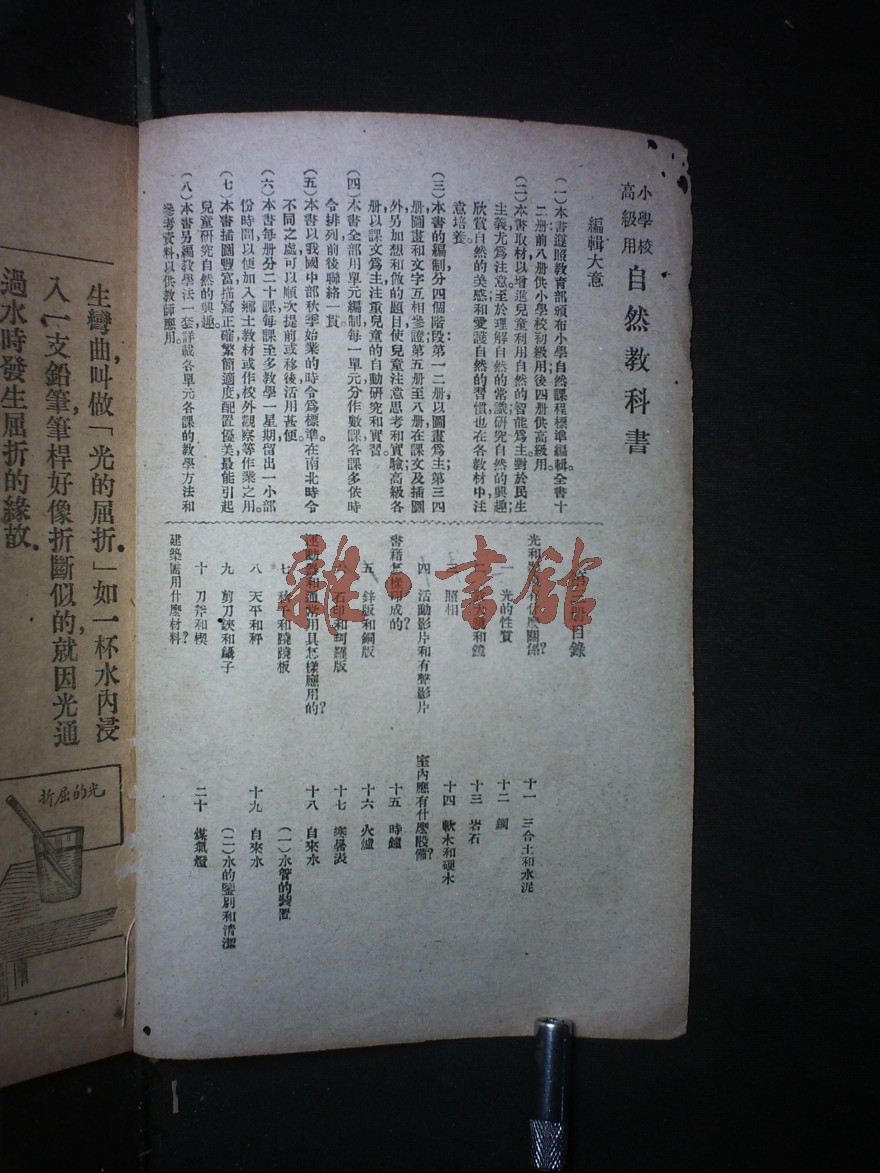 小學校
高級用
自然教科書
編輯大意
(一)本書遵照教育部頒布小學自然課程標準編輯。全書十
二册:前八册供小學校初級用,後四册供高級用。
(二)本書取材以增進兒童利用自然的智能爲主,對於民生
主義,尤爲注意。至於理解自然的常識,研究自然的興趣,
欣賞自然的美感和愛護自然的習慣,也在各教材中注
意培養。
(三)本書的編制,分四個階段:第一二册以圖畫爲主;第三四
册,圖畫和文字互相參證;第五册至八册,在課文及插圖
外,另加想和做的題目,使兒童注意思考和實驗;高級各
册以課文爲主,注重兒童的自動研究和實習。
(四)本書全部用單元編制,每一單元分作數課,各課多依時
令排列,前後聯絡一貫。
(五)本書以我國中部秋季始業的時令爲標準,在南北時令
不同之處,可以順次提前或移後,活用甚便。
(六)本書每册分二十課,每課至多教學一星期,留出一小部
份時間,以便加入鄉土教材,或作校外觀察等作業之用。
(七)本書插圖豐富,描寫正確,繁簡適度,配置優美,最能引起
兒童研究自然的興趣。
(八)本書另編教學法一套,詳載各單元各課的教學方法和
參考資料,以供教師應用。
册目錄
光和
關係?
一 光的性質
二
和鏡
三 照相
四 活動影片和有聲影片
書籍怎樣印成的?
五 鋅版和銅版
六 石印和珂羅版
運動器和通常用具怎樣應用的?
七 秋千和蹺蹺板
八 天平和秤
九 剪刀鋏和鑷子
十 刀斧和楔
建築需用什麼材料?
十一 三合土和水泥
十二 鋼
十三 岩石
十四 軟木和硬木
室內應有什麼設備?
十五 時鐘
十六 火爐
十七 寒暑表
十八 自來水
(一)水管的裝置
十九 自來水
(二)水的鑒別和清潔
二十 煤氣燈
雜·書館
生彎曲,叫做「光的屈折」如一杯水內,浸
入一支鉛筆,筆桿好像折斷似的,就因光通
過水時發生屈折的緣故。
光的屈折